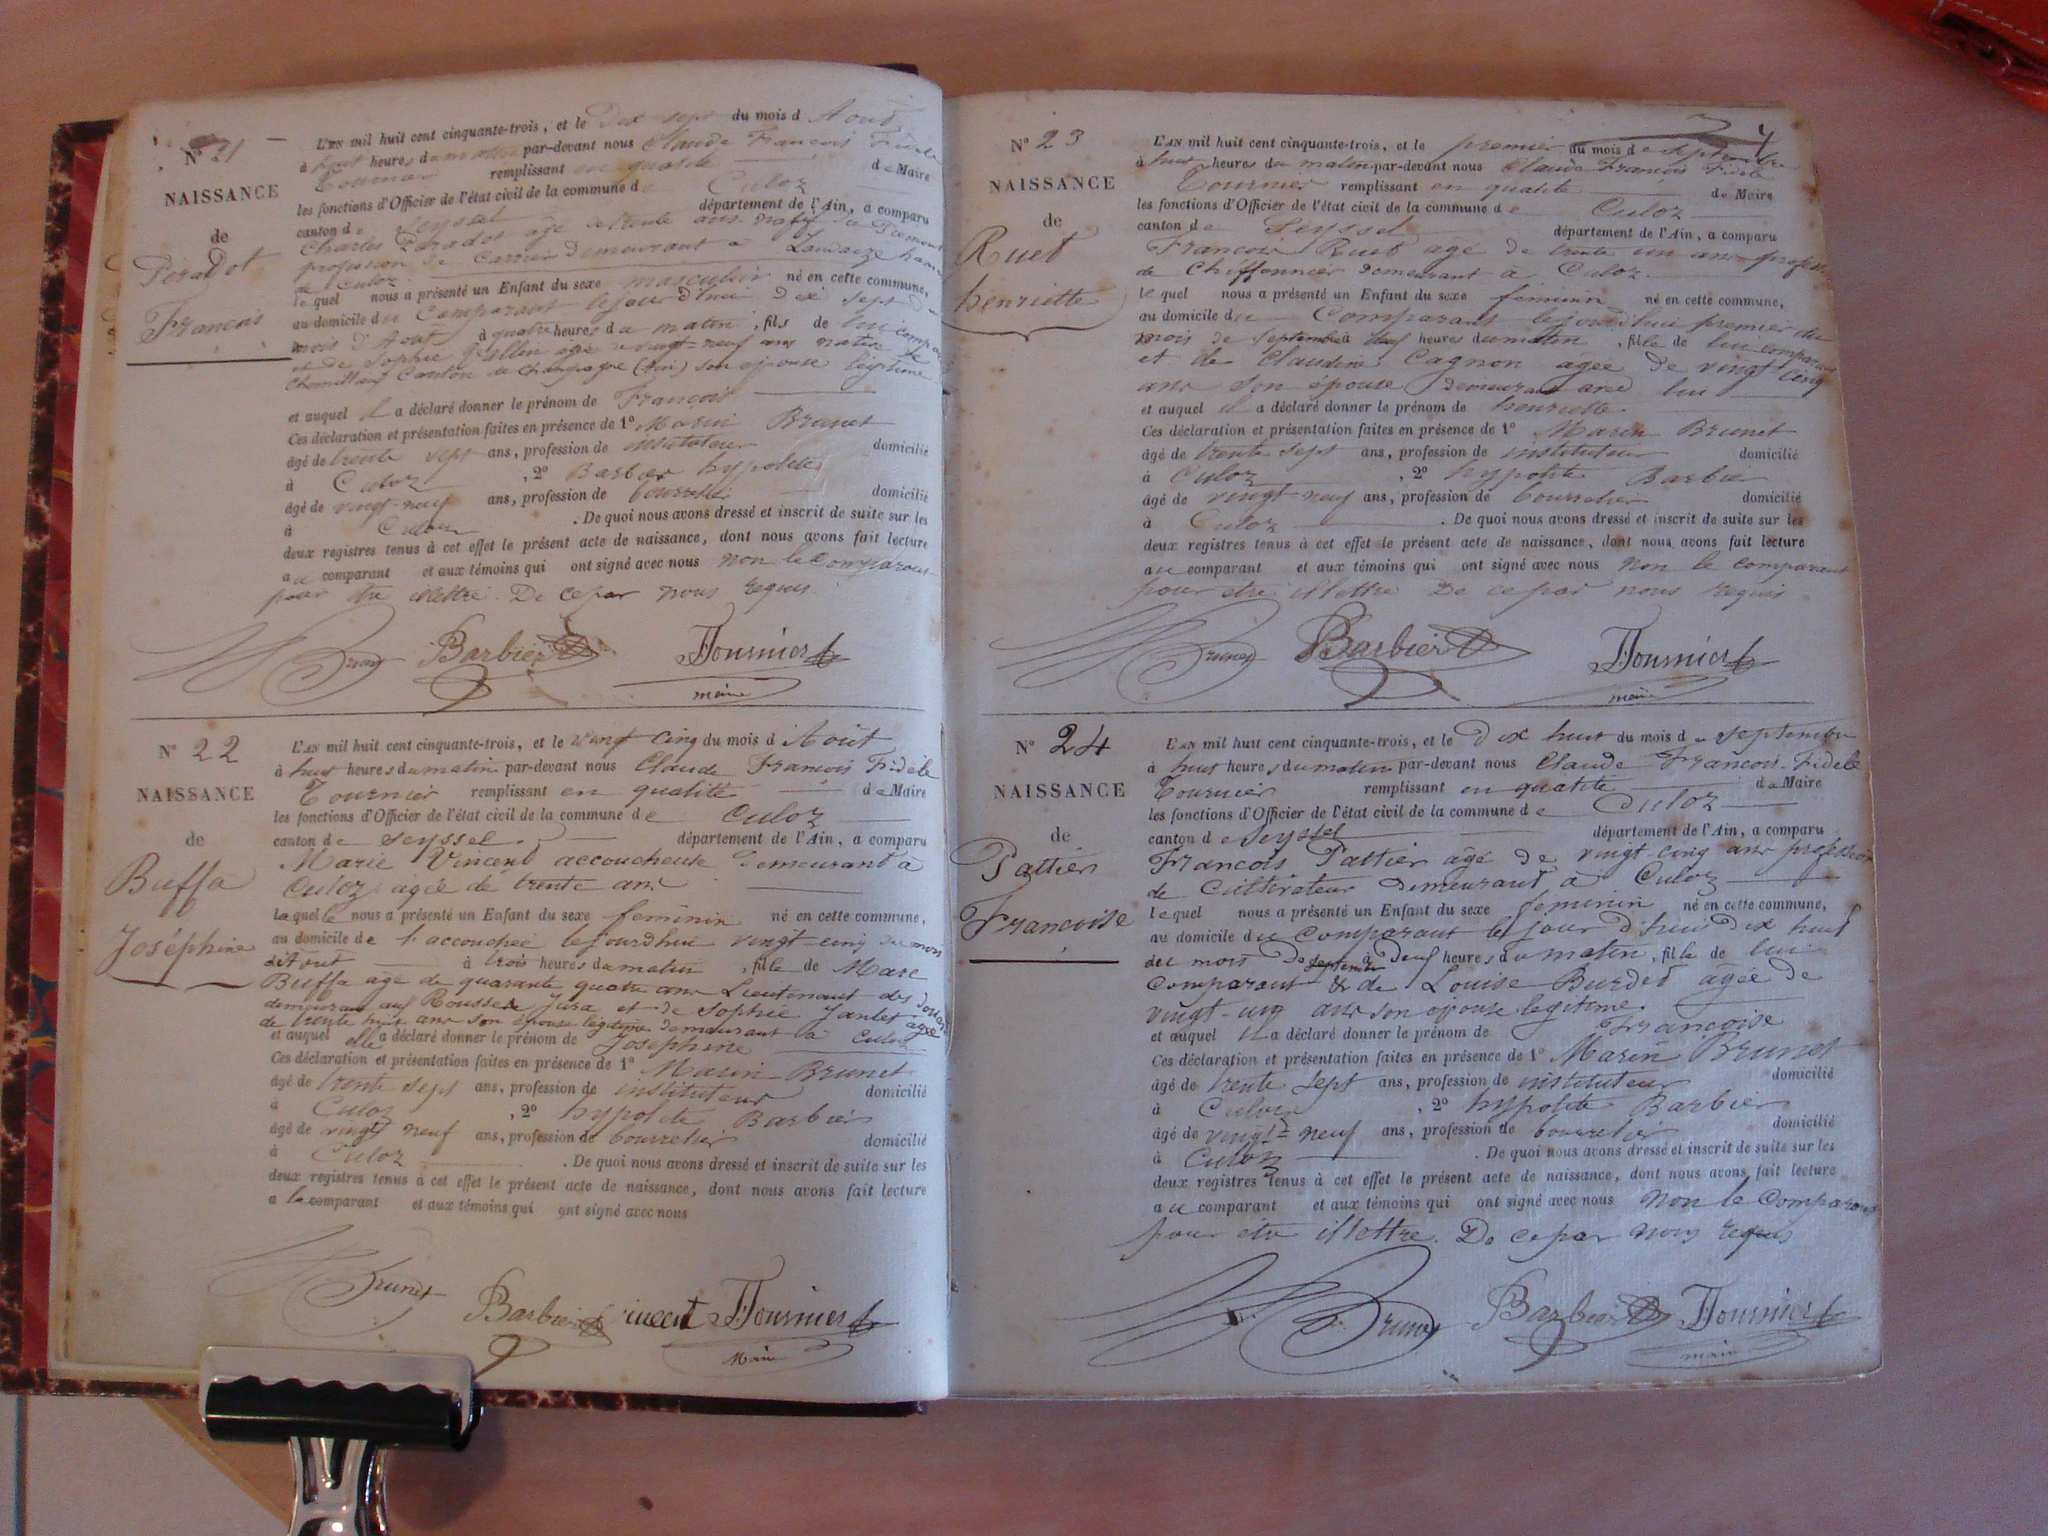 N° 21
NAISSANCE
de
Peradot
François
L'AN mil huit cent cinquante-trois, et le Dix sept du mois d Août
à huit heures du matin par-devant nous Claude François Fidele
Tournier remplissant en qualité de Maire
les fonctions d'Officier de l'état civil de la commune de Culoz
canton de Seyssel département de l'Ain, a comparu
Charles Peradot age de trente ans natif du Piemont
profession de Carrier demeurant a Landaize hameau
de Culoz
lequel nous a présenté un Enfant du sexe masculin né en cette commune,
au domicile du Comparant le jour d'hui dix sept du
mois d'Aout à quatre heures du matin, fils de lui comparant
et de Sophie agée vingt-neuf ans native de
Canton de Champagne (Ain) son epouse légitime
et auquel il a déclaré donner le prénom de François
Ces déclaration et présentation faites en présence de 1° Marin Brunet
âgé de trente sept ans, profession de instituteur domicilié
à Culoz, 2° Barbier hypolite
âgé de vingt-neuf ans, profession de bourrelier domicilié
à Culoz. De quoi nous avons dressé et inscrit de suite sur les
deux registres tenus à cet effet le présent acte de naissance, dont nous avons fait lecture
au comparant et aux témoins qui ont signé avec nous non le comparant
pour etre illettré. De ce par nous requis
Brunet Barbier Tournier
maire
N° 22
NAISSANCE
de
Buffa
Joséphine
L'AN mil huit cent cinquante-trois, et le vingt cinq du mois d Août
à huit heures du matin par-devant nous Claude François Fidèle
Tournier remplissant en qualité de Maire
les fonctions d'Officier de l'état civil de la commune de Culoz
canton de Seyssel. département de l'Ain, a comparu
Marie Vincent accoucheuse demeurant à
Culoz agée de trente ans
laquelle nous a présenté un Enfant du sexe feminin né en cette commune,
au domicile de l'accouchée le jourdhui vingt-cinq du mois
d'Aout à trois heures du matin, fille de Marc
Buffa age de quarante quatre ans Lieutenant des douanes
demeurant aux Rousses Jura et de Sophie Janlet agée
de trente huit ans son épouse légitime demeurant à Culoz
et auquel elle a déclaré donner le prénom de Josephine
Ces déclaration et présentation faites en présence de 1° Marin Brunet
âgé de trente sept ans, profession de instituteur domicilié
à Culoz, 2° hypolite Barbier
âgé de vingt neuf ans, profession de bourrelier domicilié
à Culoz. De quoi nous avons dressé et inscrit de suite sur les
deux registres tenus à cet effet le présent acte de naissance, dont nous avons fait lecture
a la comparant et aux témoins qui ont signé avec nous
Brunet Barbier vincent Tournier
Maire
7
N° 23
NAISSANCE
de
Ruet
henriette
L'AN mil huit cent cinquante-trois, et le premier du mois de septembre
à huit heures du matin par-devant nous Claude François Fidele
Tournier remplissant en qualité de Maire
les fonctions d'Officier de l'état civil de la commune de Culoz
canton de Seyssel département de l'Ain, a comparu
François Ruet agé de trente un ans profession
de Chiffonnier demeurant à Culoz
lequel nous a présenté un Enfant du sexe feminin né en cette commune,
au domicile du Comparant le jourd'hui premier du
mois de septembre à deux heures du matin, fille de lui comparant
et de Claudine Cagnon agée de vingt cinq
ans son épouse demeurant avec lui
et auquel il a déclaré donner le prénom de henriette
Ces déclaration et présentation faites en présence de 1° Marin Brunet
âgé de trente sept ans, profession de instituteur domicilié
à Culoz, 2° hypolite Barbier
âgé de vingt-neuf ans, profession de bourrelier domicilié
à Culoz. De quoi nous avons dressé et inscrit de suite sur les
deux registres tenus à cet effet le présent acte de naissance, dont nous avons fait lecture
au comparant et aux témoins qui ont signé avec nous non le comparant
pour etre illettre De ce par nous requis
Brunet Barbier Tournier
maire
N° 24
NAISSANCE
de
Pattier
Françoise
L'AN mil huit cent cinquante-trois, et le dix huit du mois de septembre
à huit heures du matin par-devant nous Claude François-Fidele
Tournier remplissant en qualité de Maire
les fonctions d'Officier de l'état civil de la commune de Culoz
canton de Seyssel département de l'Ain, a comparu
François Pattier âgé de vingt-cinq ans profession
de Cultivateur demeurant à Culoz
lequel nous a présenté un Enfant du sexe feminin né en cette commune,
au domicile du comparant le jour d'hui dix huit
du mois de septembre à deux heures du matin, fille de lui
comparant & de Louise Burdet agée de
vingt-un ans son epouse legitime
et auquel il a déclaré donner le prénom de Françoise
Ces déclaration et présentation faites en présence de 1° Marin Brunet
âgé de trente sept ans, profession de instituteur domicilié
à Culoz, 2° hypolite Barbier
âgé de vingt-neuf ans, profession de bourrelier domicilié
à Culoz. De quoi nous avons dressé et inscrit de suite sur les
deux registres tenus à cet effet le présent acte de naissance, dont nous avons fait lecture
au comparant et aux témoins qui ont signé avec nous non le comparant
pour etre illettre. De ce par nous requis
Brunet Barbier Tournier
maire